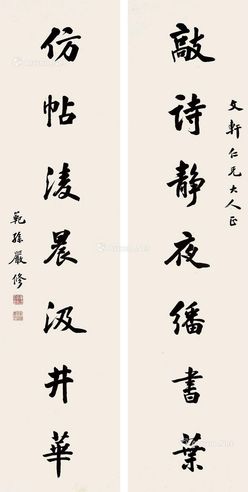 文軒仁兄大人正
敲詩靜夜繙書葉
仿帖淩晨汲井華
範孫嚴修